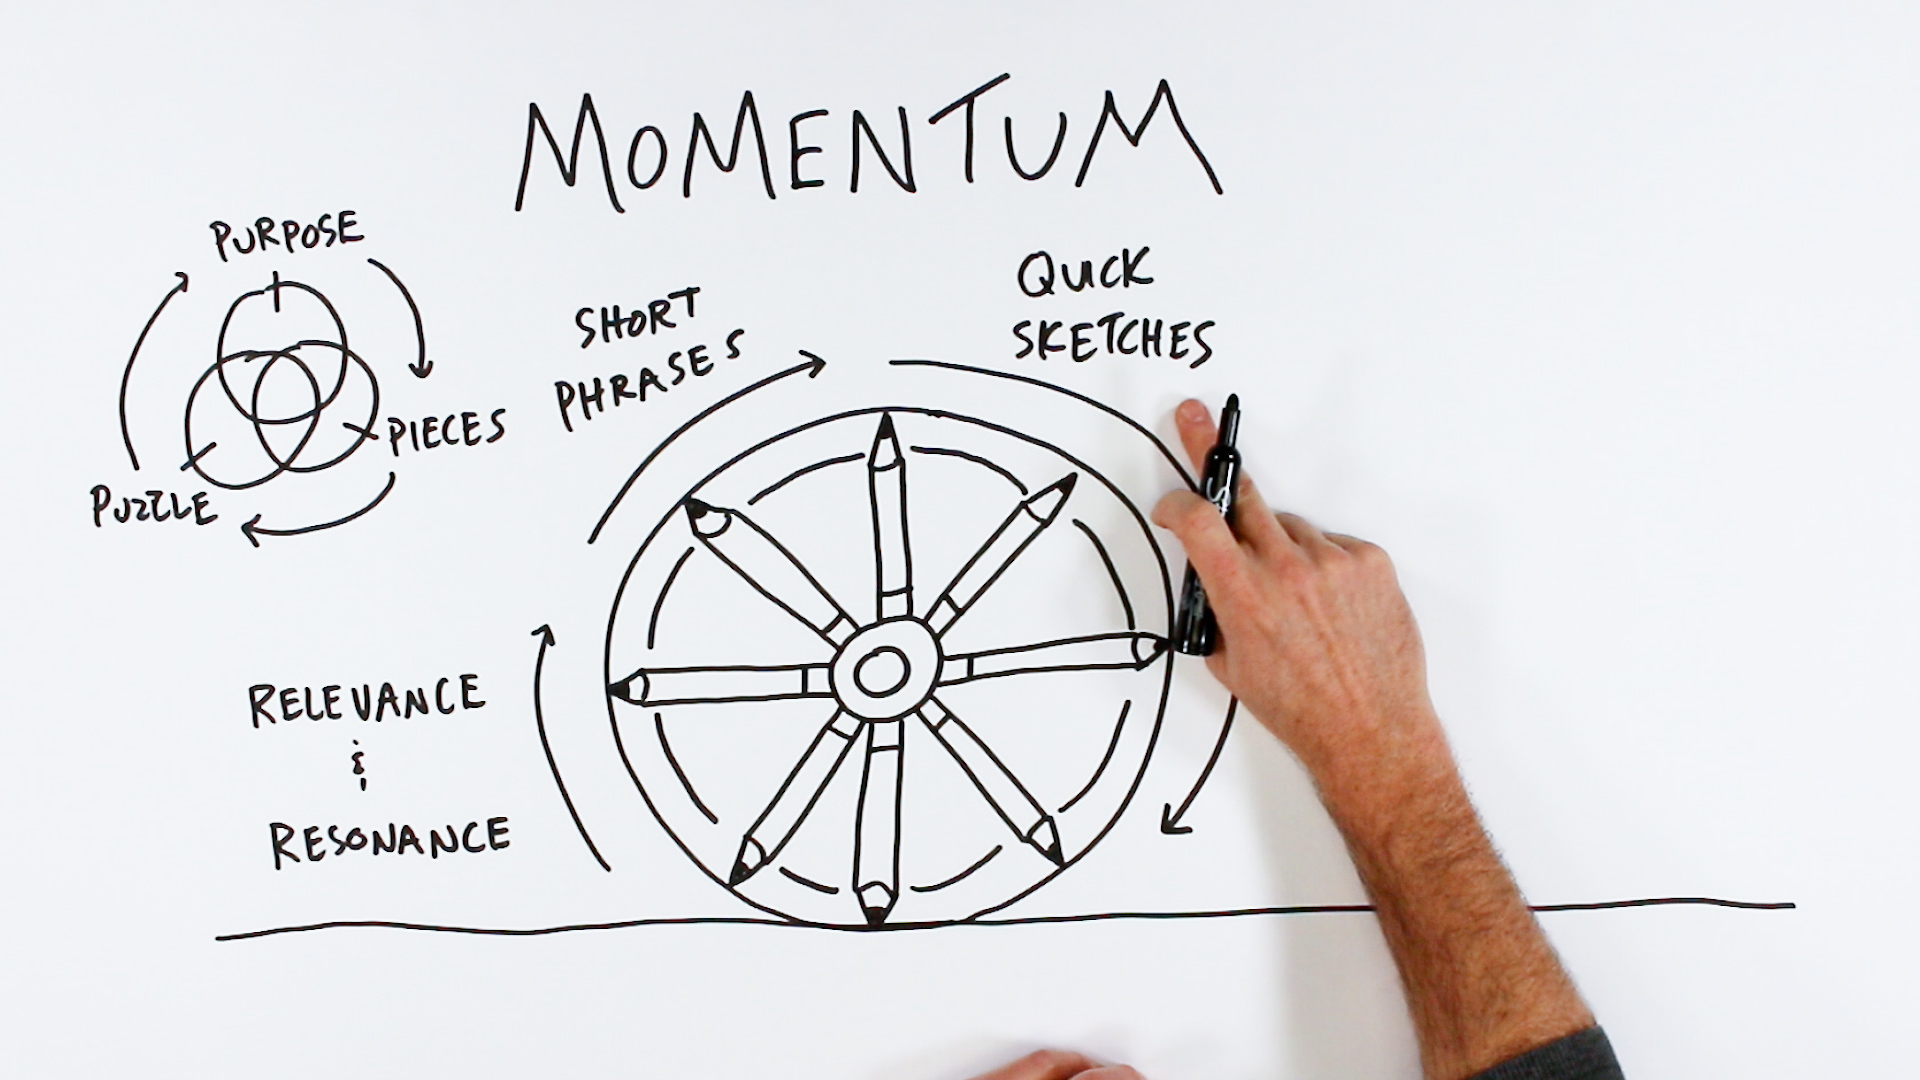 MOMENTUM
PURPOSE
PIECES
PUZZLE
SHORT
PHRASES
QUICK
SKETCHES
RELEVANCE
&
RESONANCE